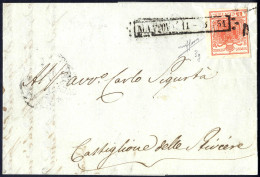 MANTOVA
All' Avvo. Carlo Sigurtà
Castiglione delle Stiviere